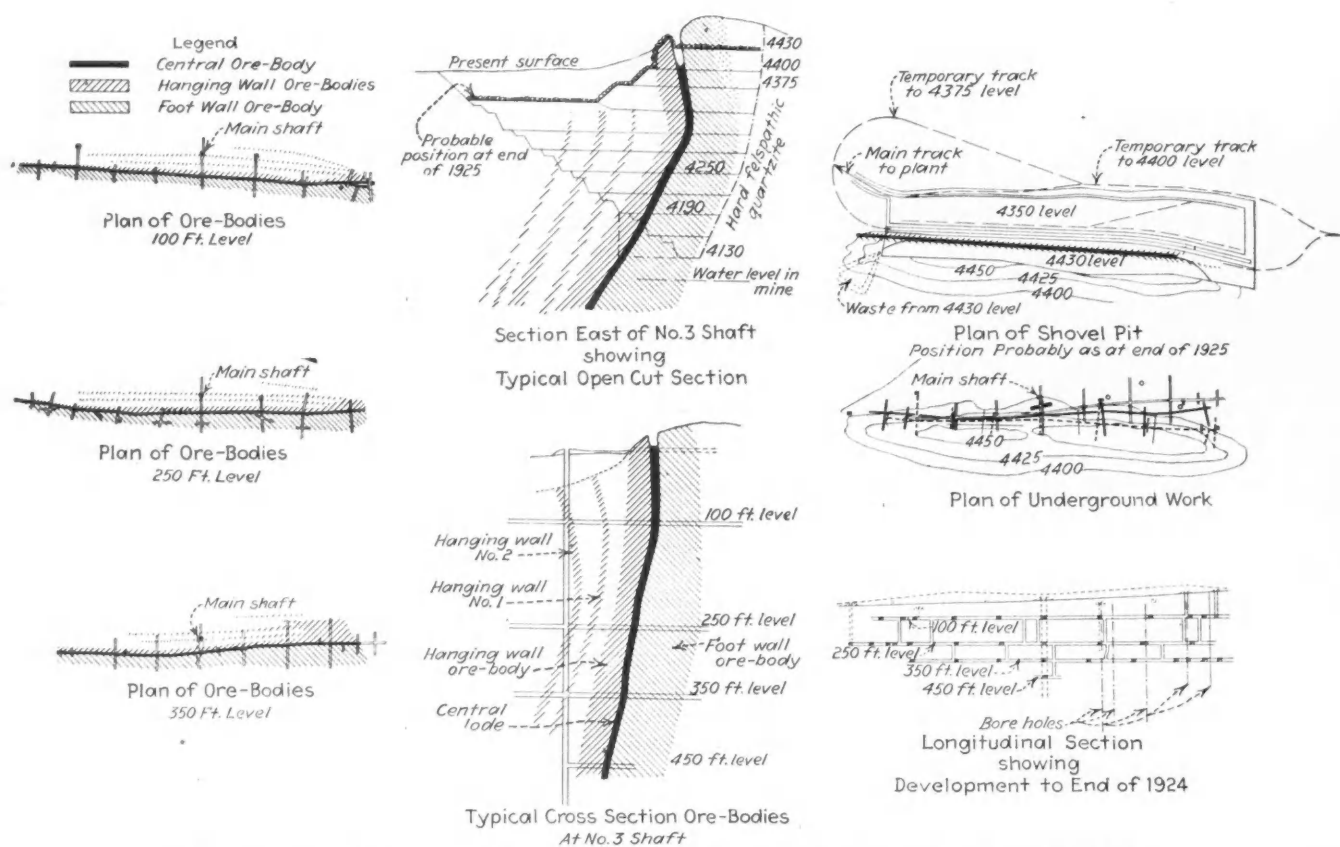 Legend
Central Ore-Body
Hanging Wall Ore-Bodies
Foot Wall Ore-Body
Main shaft
Plan of Ore-Bodies
100 Ft. Level
Main shaft
Plan of Ore-Bodies
250 Ft. Level
Main shaft
Plan of Ore-Bodies
350 Ft. Level
Present surface
Probable
position at end
of 1925
4430
4400
4375
4250
4190
4130
Hard felspathic
quartzite
Water level in
mine
Section East of No.3 Shaft
showing
Typical Open Cut Section
100 ft. level
Hanging wall
No. 2
Hanging wall
No. 1
250 ft. level
Hanging wall
ore-body
Foot wall
ore-body
350 ft. level
Central
lode
450 ft. level
Typical Cross Section Ore-Bodies
At No. 3 Shaft
Temporary track
to 4375 level
Main track
to plant
Temporary track
to 4400 level
4350 level
4430 level
4450
4425
4400
Waste from 4430 level
Plan of Shovel Pit
Position Probably as at end of 1925
Main shaft
4450
4425
4400
Plan of Underground Work
100 ft. level
250 ft. level
350 ft. level
450 ft. level
Bore holes
Longitudinal Section
showing
Development to End of 1924